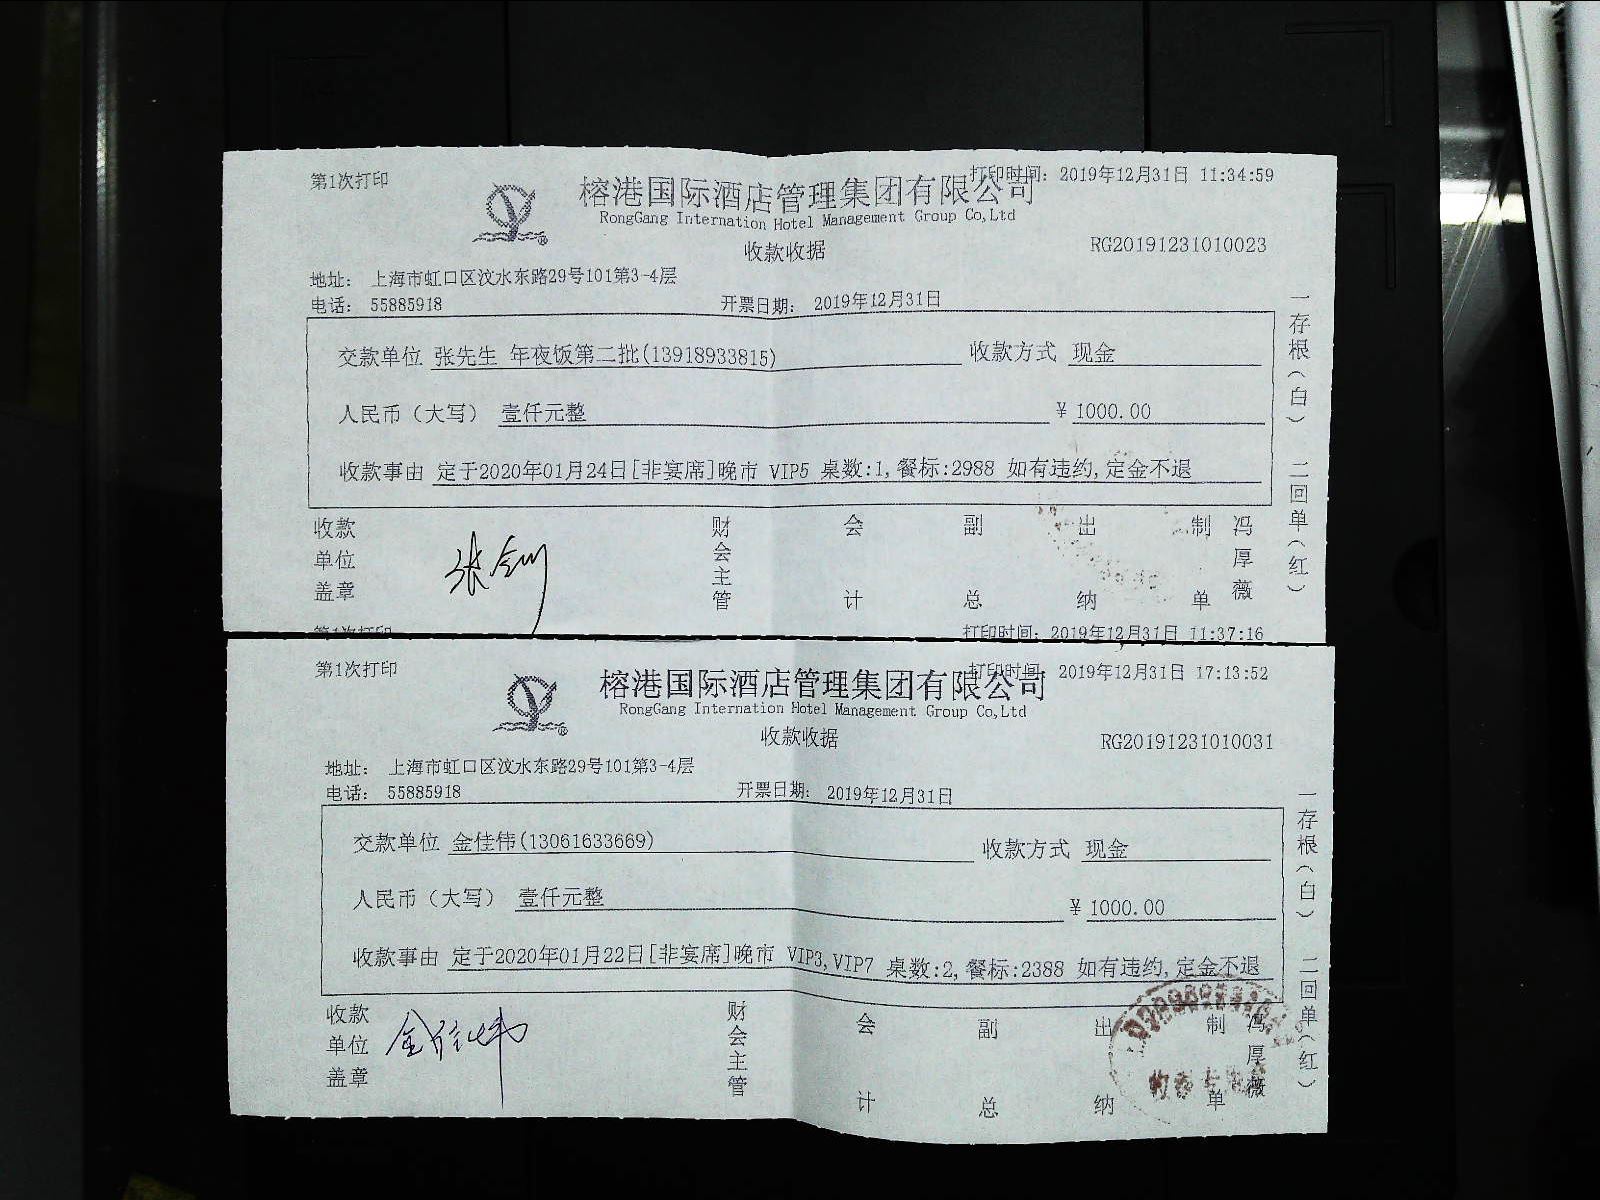 第1次打印
打印时间: 2019年12月31日 11:34:59
榕港国际酒店管理集团有限公司
RongGang Internation Hotel Management Group Co,Ltd
收款收据
RG20191231010023
地址: 上海市虹口区汶水东路29号101第3-4层
电话: 55885918
开票日期: 2019年12月31日
交款单位 张先生 年夜饭第二批(13918933815)
收款方式 现金
人民币(大写) 壹仟元整
¥ 1000.00
收款事由 定于2020年01月24日[非宴席]晚市 VIP5 桌数:1,餐标:2988 如有违约,定金不退
收款单位盖章
财会主管
会计
副总
出纳
制单
冯厚薇
一存根(白) 二回单(红)
第1次打印
打印时间: 2019年12月31日 11:37:16
第1次打印
打印时间: 2019年12月31日 17:13:52
榕港国际酒店管理集团有限公司
RongGang Internation Hotel Management Group Co,Ltd
收款收据
RG20191231010031
地址: 上海市虹口区汶水东路29号101第3-4层
电话: 55885918
开票日期: 2019年12月31日
交款单位 金佳伟(13061633669)
收款方式 现金
人民币(大写) 壹仟元整
¥ 1000.00
收款事由 定于2020年01月22日[非宴席]晚市 VIP3,VIP7 桌数:2,餐标:2388 如有违约,定金不退
收款单位盖章
金佳伟
财会主管
会计
副总
出纳
制单
冯厚薇
一存根(白) 二回单(红)